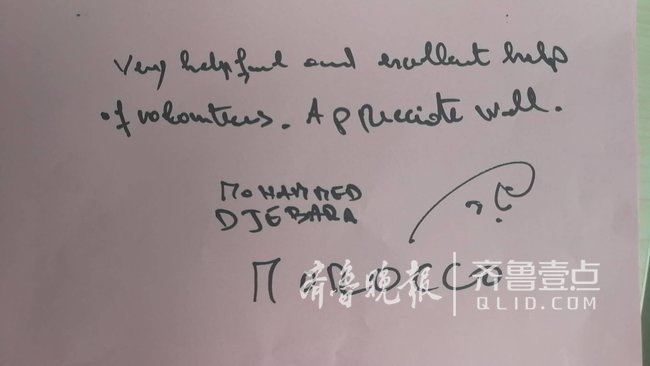 Very helpful and excellent help
of volonteers. Appreciate well.
MOHAMMED
DJEBARA
MOROCCO
齐鲁晚报 齐鲁壹点
QLID.COM